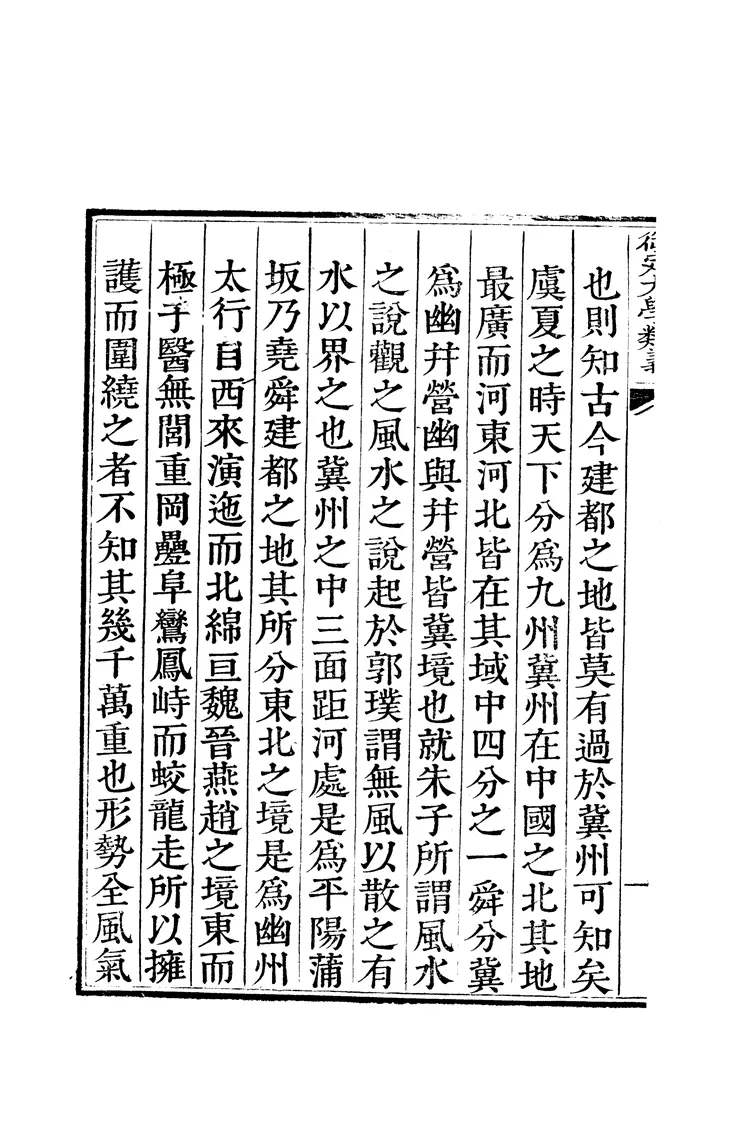 也則知古今建都之地皆莫有過於冀州可知矣
虞夏之時天下分爲九州冀州在中國之北其地
最廣而河東河北皆在其域中四分之一舜分冀
爲幽幷營幽與幷營皆冀境也就朱子所謂風水
之說觀之風水之說起於郭璞謂無風以散之有
水以界之也冀州之中三面距河處是爲平陽蒲
坂乃堯舜建都之地其所分東北之境是爲幽州
太行自西來演迤而北綿亘魏晉燕趙之境東而
極于醫無閭重岡疊阜鸞鳳峙而蛟龍走所以擁
護而圍繞之者不知其幾千萬重也形勢全風氣